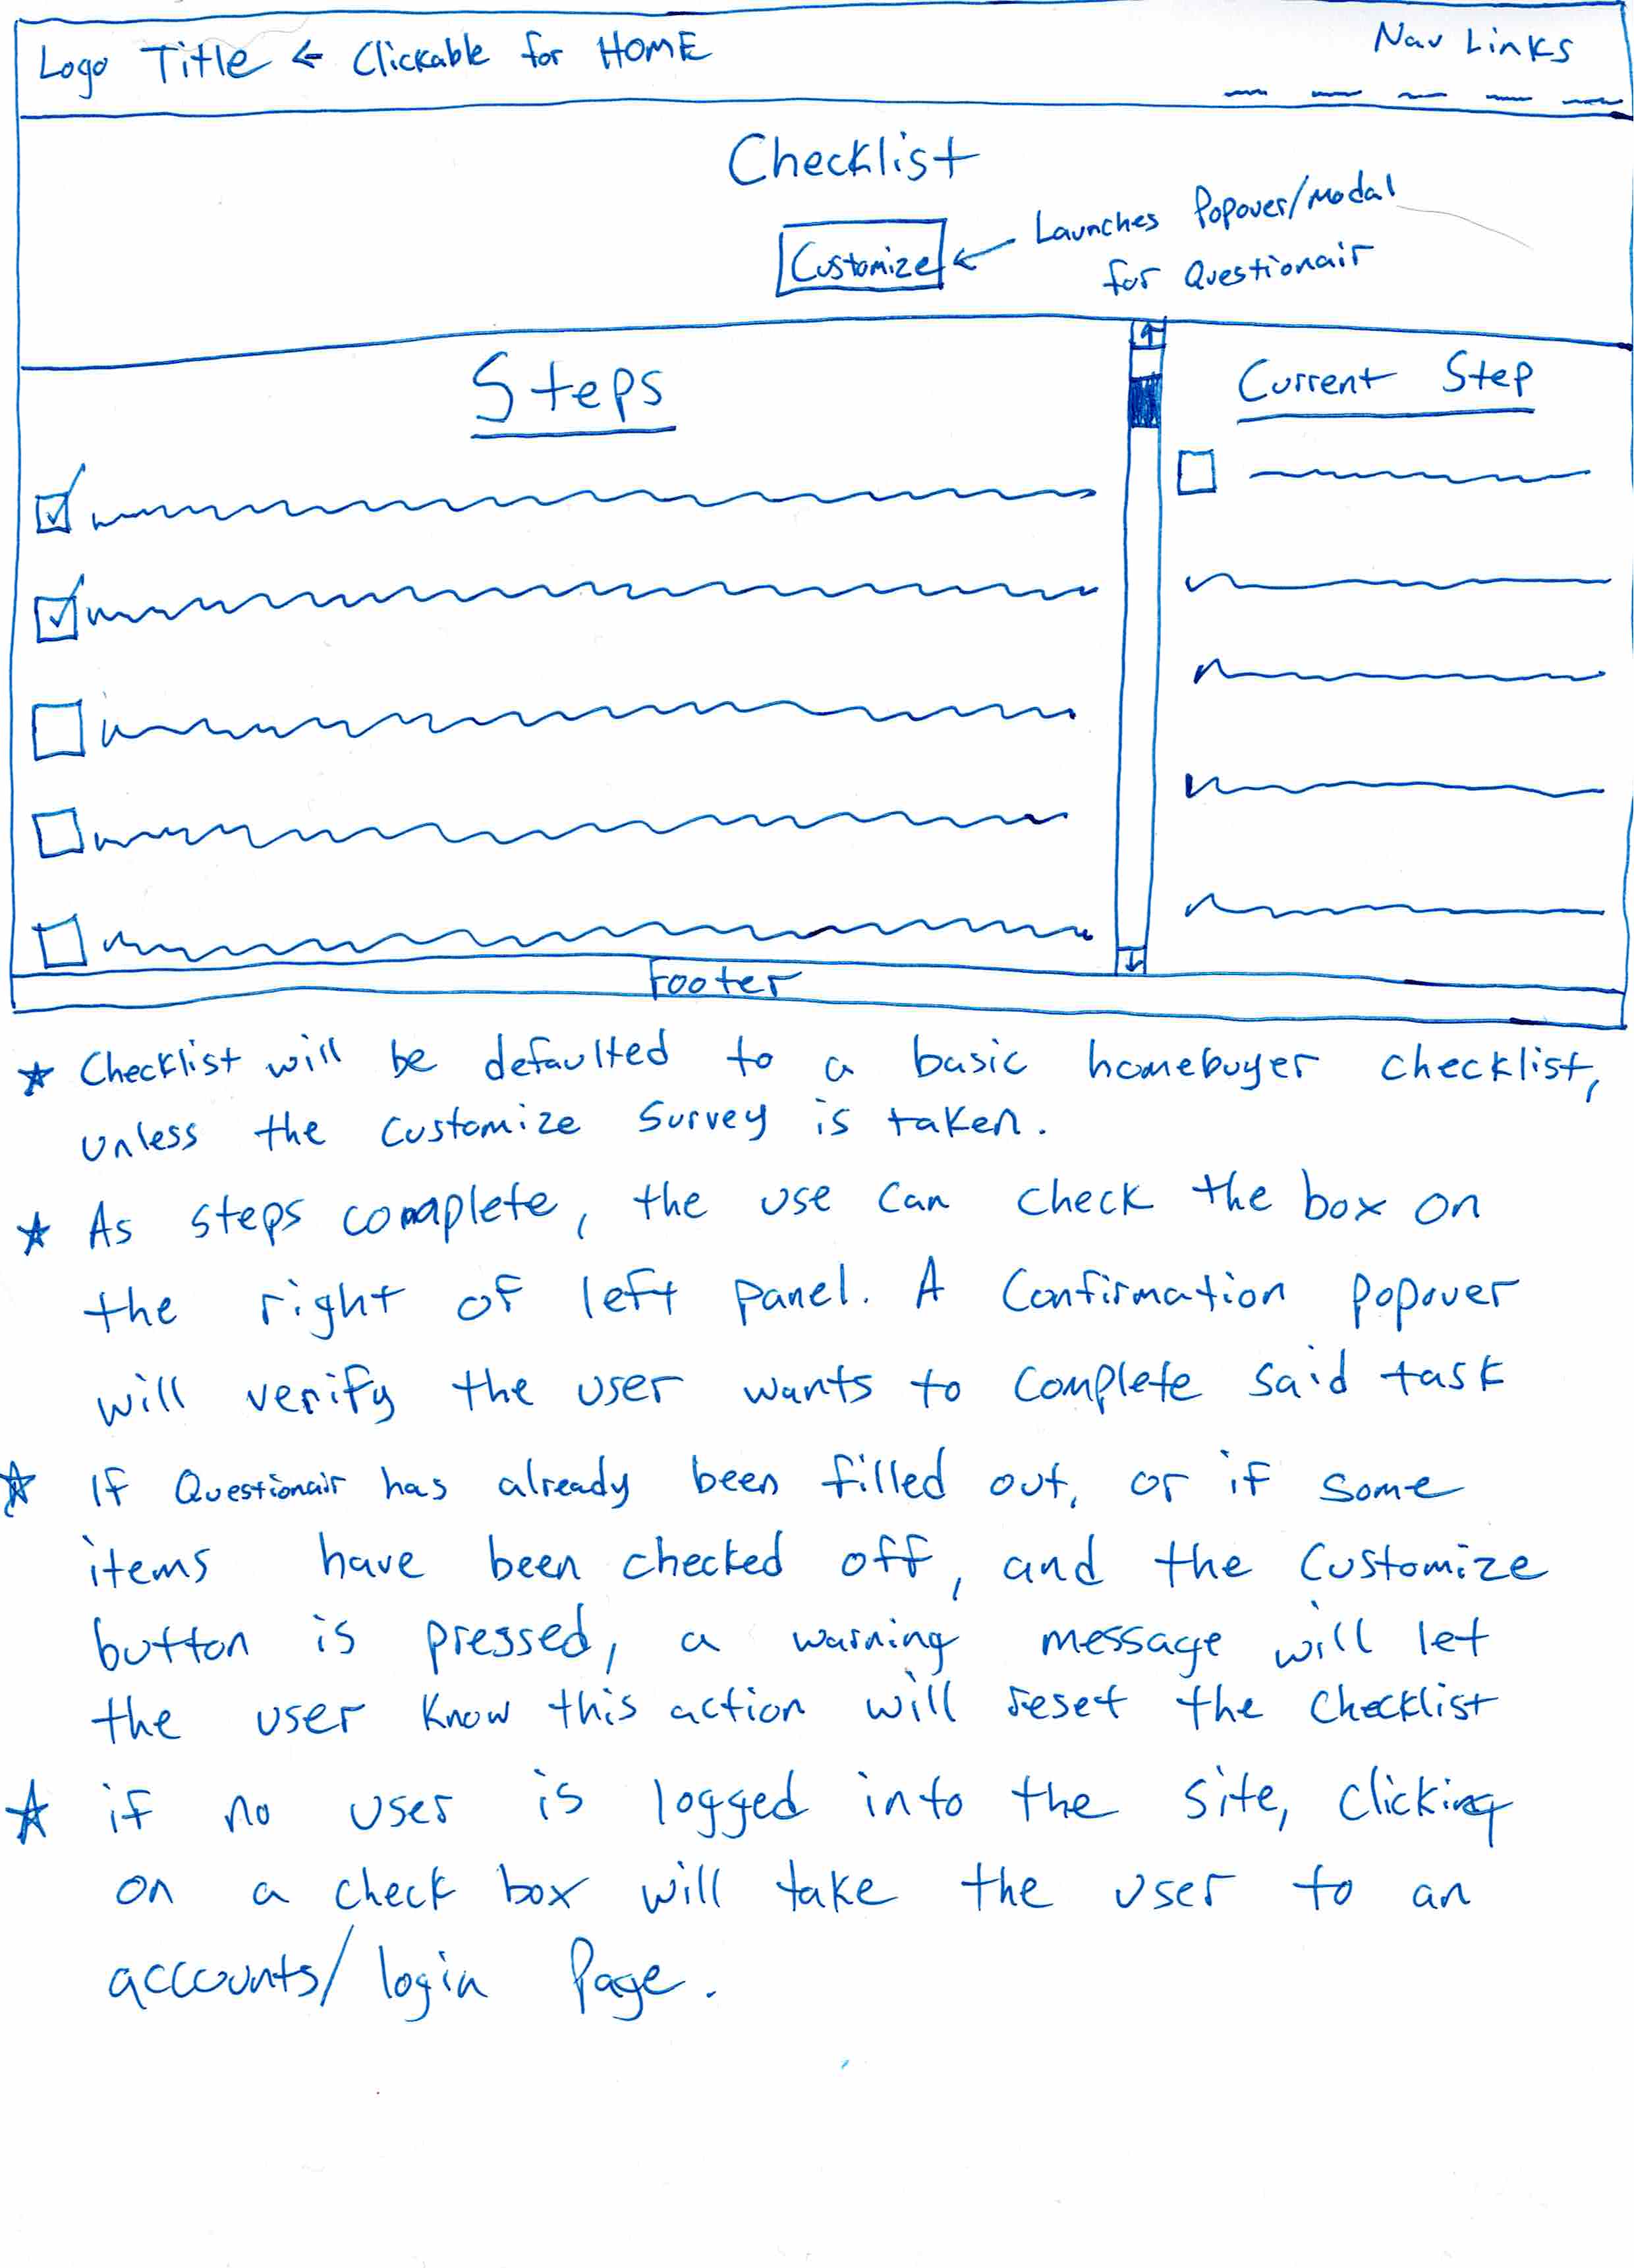 Logo Title ← Clickable for HOME
Nav Links
Checklist
Customize
← Launches Popover/Modal
for Questionair
Steps
Current Step
Footer
★ Checklist will be defaulted to a basic homebuyer checklist,
unless the customize survey is taken.
★ As steps complete, the use can check the box on
the right of left panel. A Confirmation popover
will verify the user wants to complete said task
★ If Questionair has already been filled out, or if some
items have been checked off, and the Customize
button is pressed, a warning message will let
the user know this action will reset the checklist
★ if no user is logged into the site, clicking
on a check box will take the user to an
accounts/login Page.